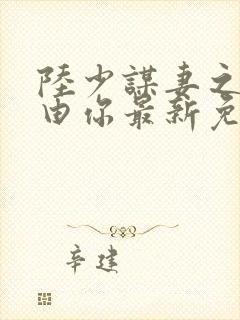 陸少謀妻之
由你最新免
辛建